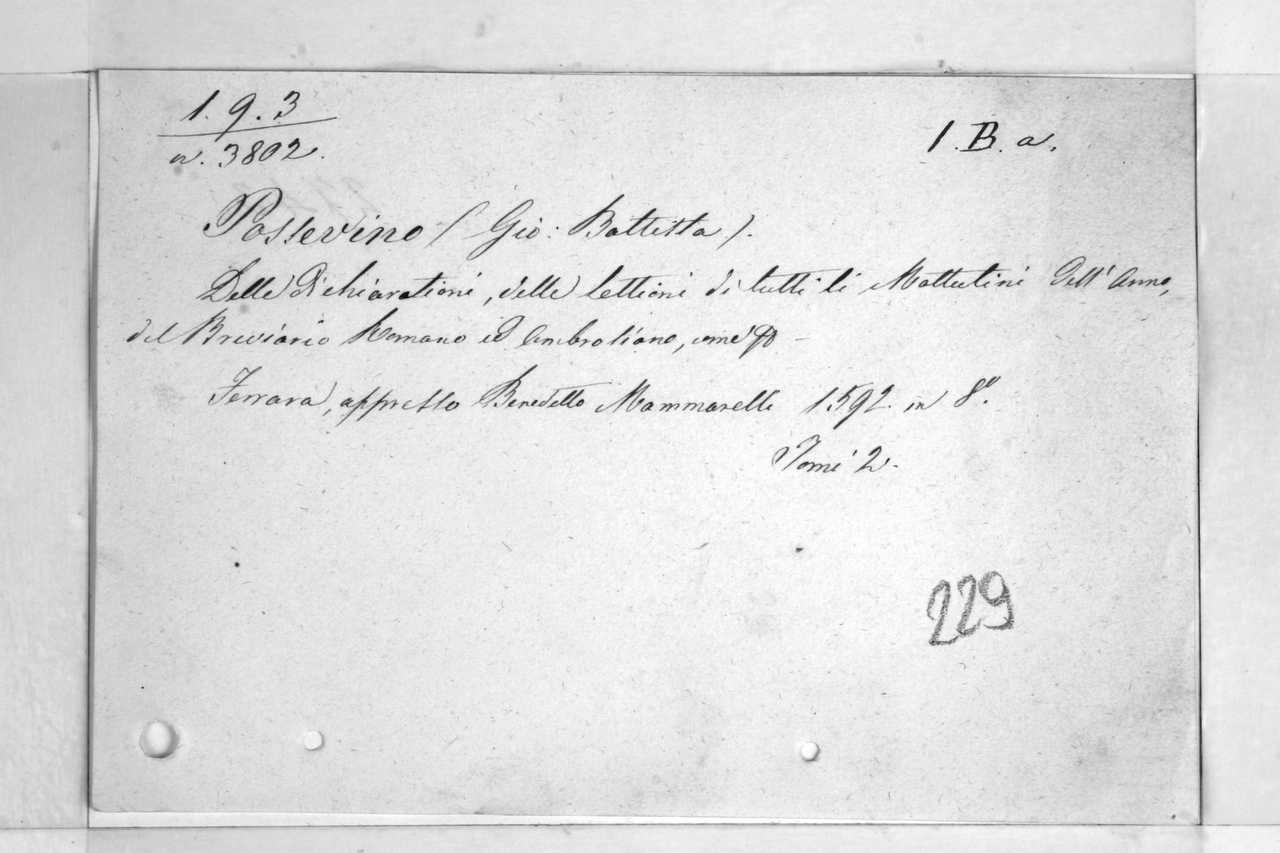 1. 9. 3
n. 3802.
1. B. a.
Possevino (Gio: Battista).
Delle Dichiarationi, delle lettioni di tutti li Mattutini dell'Anno,
del Breviario Romano ed Ambrosiano,
Ferrara, appresso Benedetto Mammarelli 1592. in 8º.
Tomi 2.
229